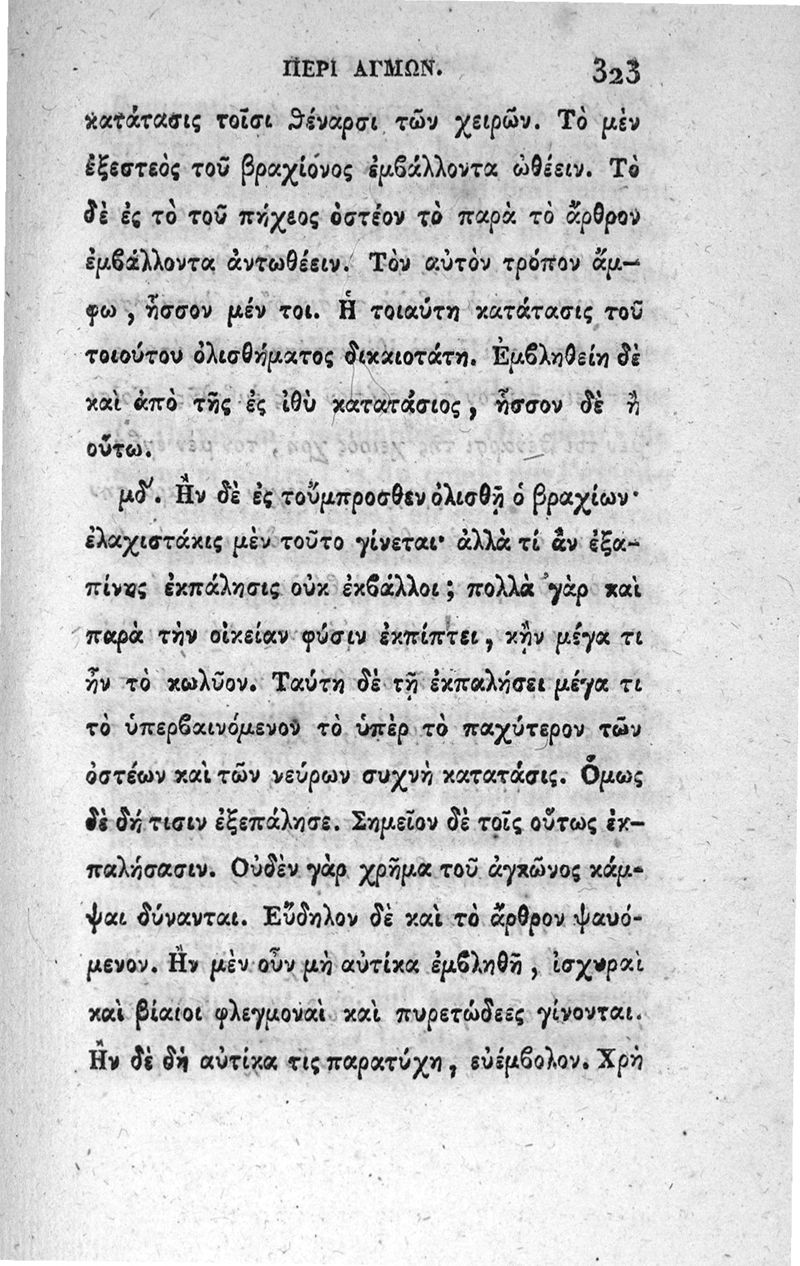 ΠΕΡΙ ΑΓΜΩΝ. 323
κατάτασις τοῖσι θέναρσι τῶν χειρῶν. Τὸ μὲν
ἐξεστεὸς τοῦ βραχίονος ἐμβάλλοντα ὠθέειν. Τὸ
δὲ ἐς τὸ τοῦ πήχεος ὀστέον τὸ παρὰ τὸ ἄρθρον
ἐμβάλλοντα ἀντωθέειν. Τὸν αὐτὸν τρόπον ἄμ-
φω, ἧσσον μέν τοι. Ἡ τοιαύτη κατάτασις τοῦ
τοιούτου ὀλισθήματος δικαιοτάτη. Ἐμβληθείη δὲ
καὶ ἀπὸ τῆς ἐς ἰθὺ κατατάσιος, ἧσσον δὲ ἢ
οὕτω.
μδʹ. Ἢν δὲ ἐς τοὔμπροσθεν ὀλισθῇ ὁ βραχίων·
ἐλαχιστάκις μὲν τοῦτο γίνεται· ἀλλὰ τί ἂν ἐξα-
πίνης ἐκπάλησις οὐκ ἐκβάλλοι; πολλὰ γὰρ καὶ
παρὰ τὴν οἰκείαν φύσιν ἐκπίπτει, κἢν μέγα τι
ἦν τὸ κωλῦον. Ταύτη δὲ τῇ ἐκπαλήσει μέγα τι
τὸ ὑπερβαινόμενον τὸ ὑπὲρ τὸ παχύτερον τῶν
ὀστέων καὶ τῶν νεύρων συχνὴ κατατάσις. Ὅμως
δὲ δή τισιν ἐξεπάλησε. Σημεῖον δὲ τοῖς οὕτως ἐκ-
παλήσασιν. Οὐδὲν γὰρ χρῆμα τοῦ ἀγκῶνος κάμ-
ψαι δύνανται. Εὔδηλον δὲ καὶ τὸ ἄρθρον ψαυό-
μενον. Ἢν μὲν οὖν μὴ αὐτίκα ἐμβληθῇ, ἰσχυραὶ
καὶ βίαιοι φλεγμοναὶ καὶ πυρετώδεες γίνονται.
Ἢν δὲ δὴ αὐτίκα τις παρατύχη, εὐέμβολον. Χρὴ